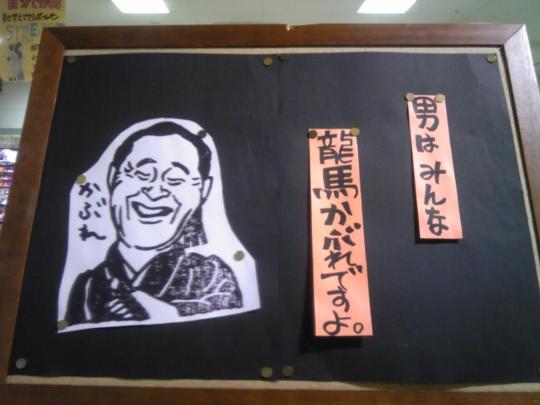 男はみんな
龍馬かぶれですよ。
かぶれ